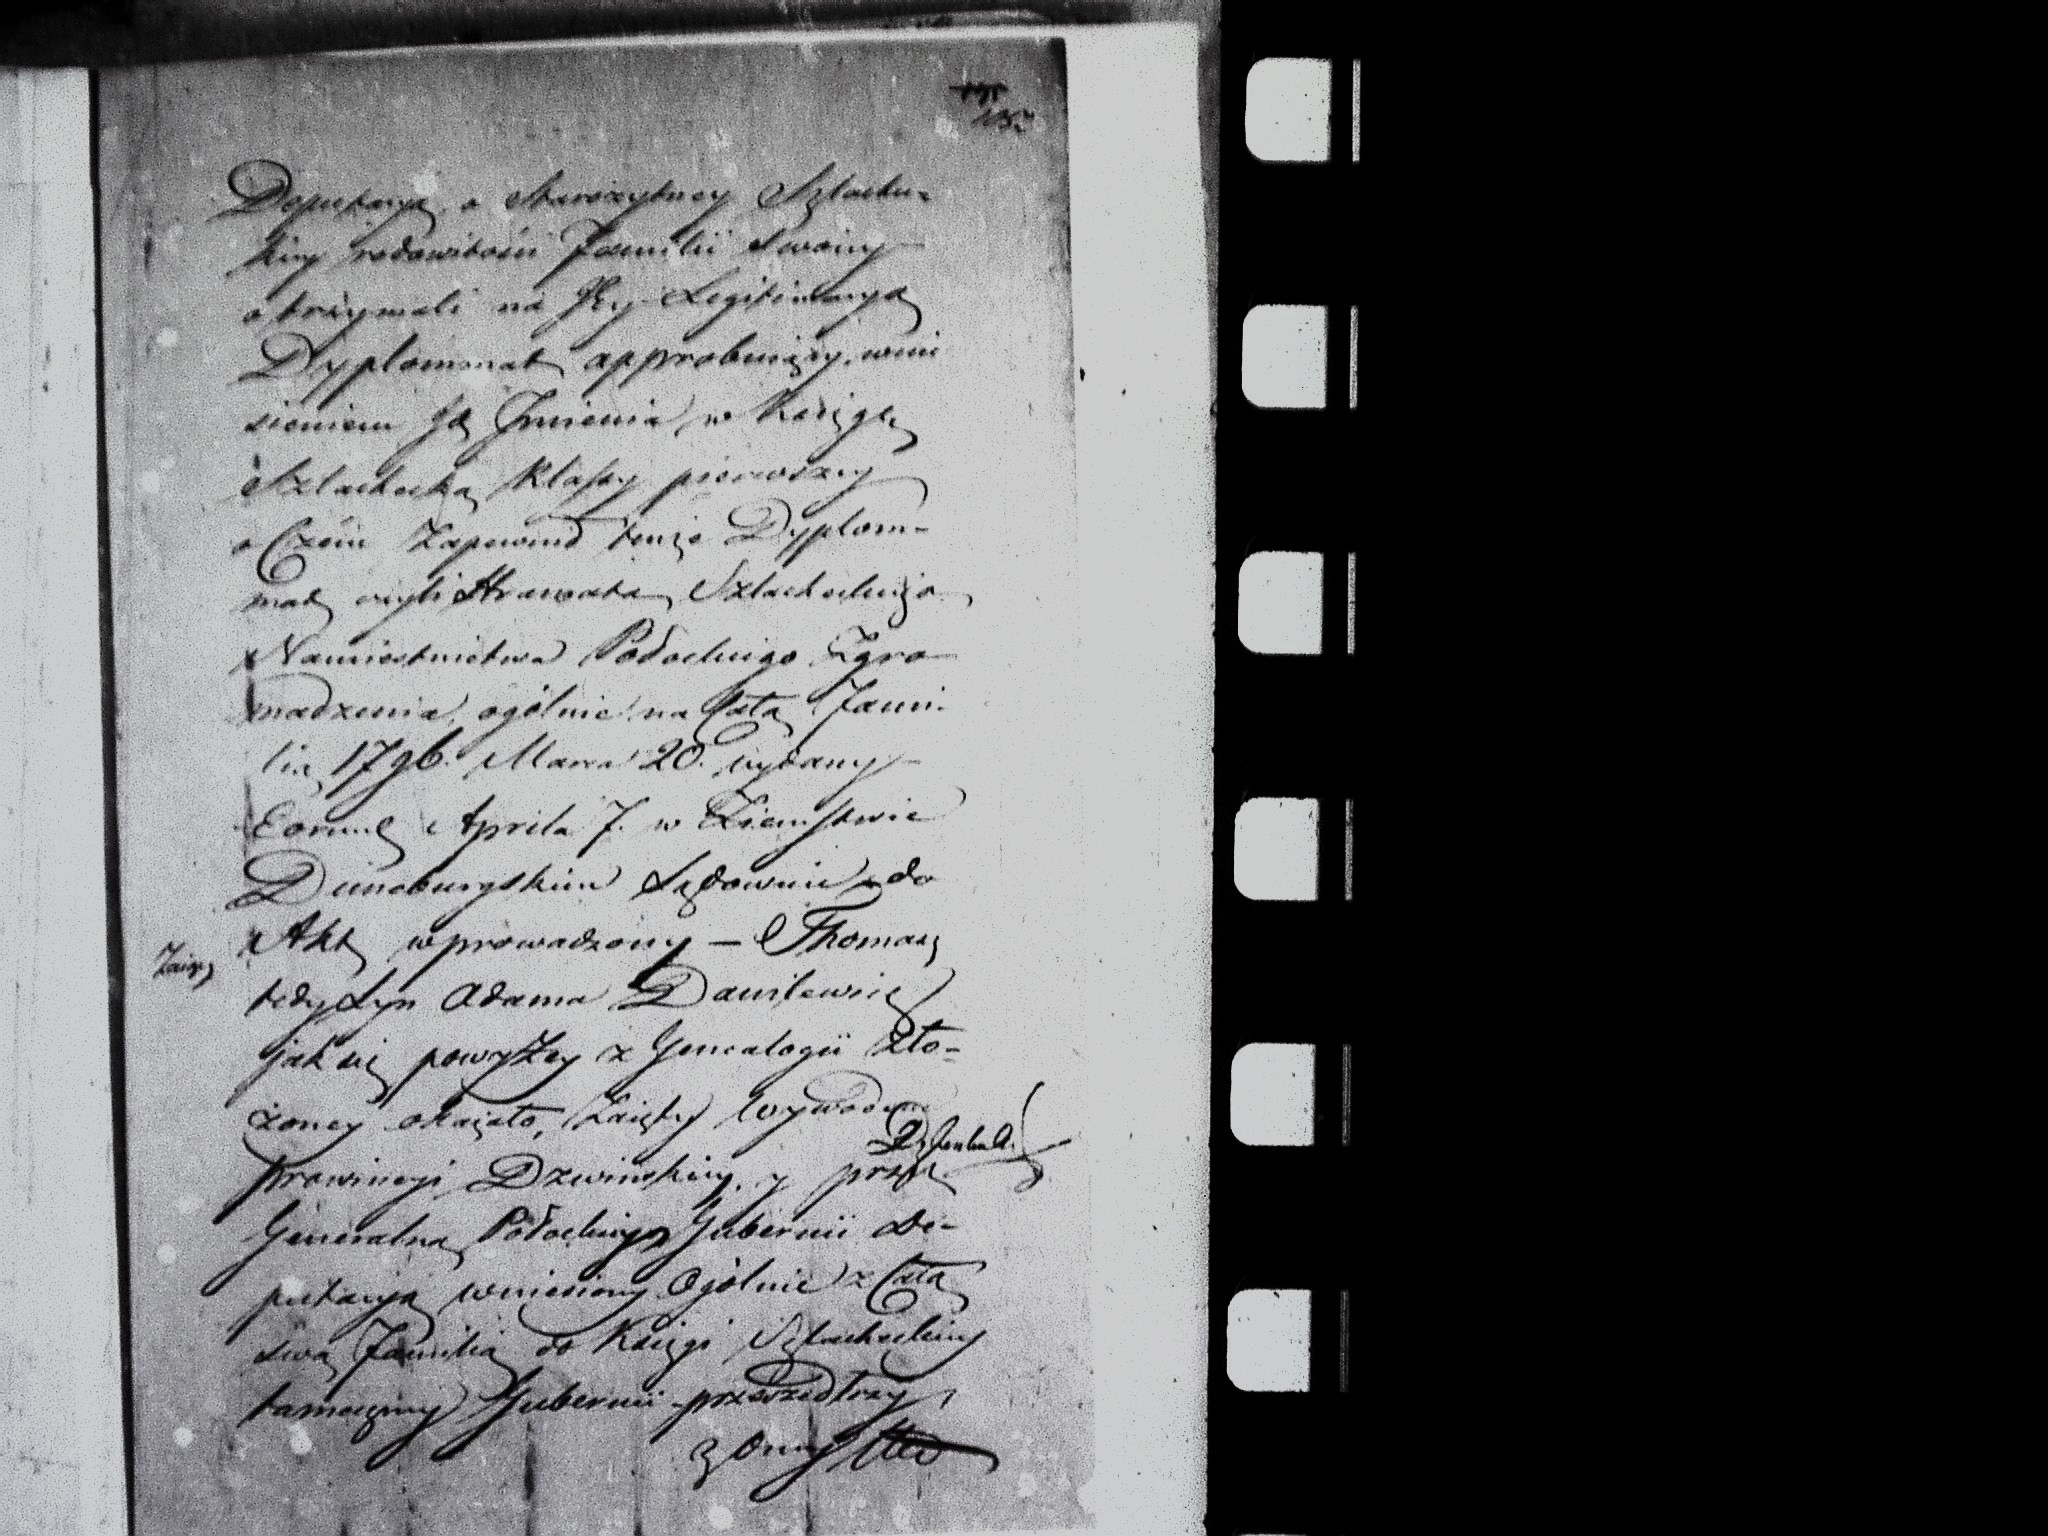 Deputacya o Starożytney Szlachec-
kiey rodowitości Familii Swoiey
otrzymali na Jey Legitimacyą
Dyplommat approbuiący, wnie
sieniem Jch Jmienia w Xsięgę
Szlachecką Klassy pierwszey
o Czém Zapewnił tenże Dyplom-
mat czyli Hramata Szlacheckiego
Namiestnictwa Połockiego Zgro
madzenia, ogólnie na Całą Fami-
lią 1796. Marca 20. wydany
Eorund Aprila 7. w Ziemstwie
Dunoburgskim Sądownie do
Akt wprowadzony — Thomasz
tedy Syn Adama Danilewicz
jak się powyżey z Genealogii zło-
żoney okazało, Zaięty Wywodem
prowincyi Dzwinskiey, y przez
Generalną Połockiego Gubernii De-
putacyą wniesiony Ogólnie z Całą
swą Familią do Xsięgi Szlacheckiey
tameczney Gubernii przeszedłszy
z Oney